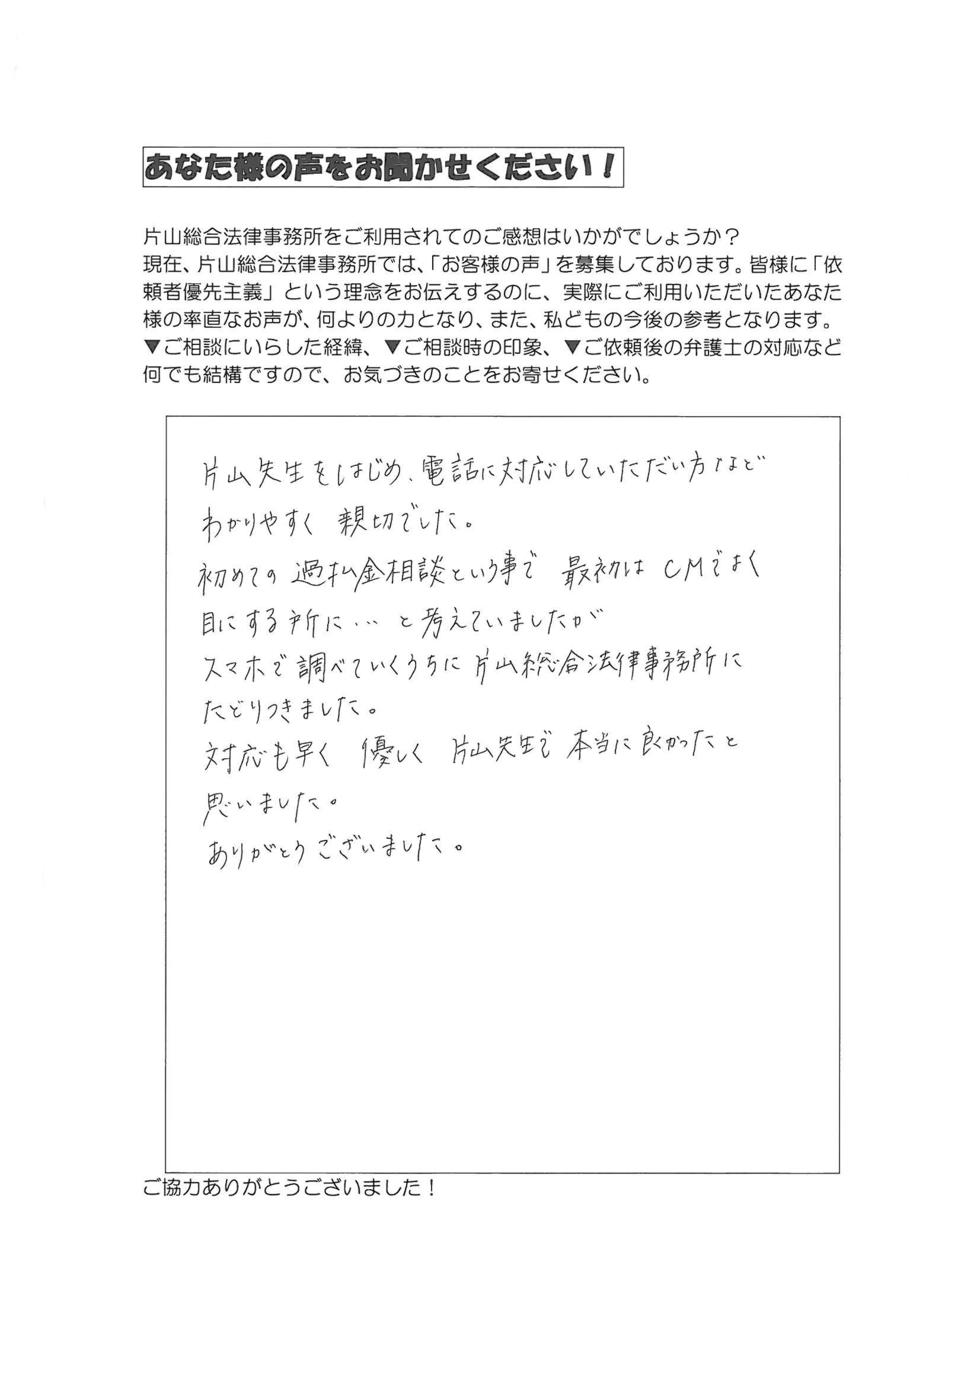 あなた様の声をお聞かせください！
片山総合法律事務所をご利用されてのご感想はいかがでしょうか？
現在、片山総合法律事務所では、「お客様の声」を募集しております。皆様に「依
頼者優先主義」という理念をお伝えするのに、実際にご利用いただいたあなた
様の率直なお声が、何よりの力となり、また、私どもの今後の参考となります。
▼ご相談にいらした経緯、▼ご相談時の印象、▼ご依頼後の弁護士の対応など
何でも結構ですので、お気づきのことをお寄せください。
片山先生をはじめ、電話に対応していただい方など
わかりやすく 親切でした。
初めての 過払金相談という事で 最初は CMでよく
目にする所に… と考えていましたが
スマホで調べていくうちに片山総合法律事務所に
たどりつきました。
対応も早く 優しく 片山先生で本当に良かったと
思いました。
ありがとうございました。
ご協力ありがとうございました！